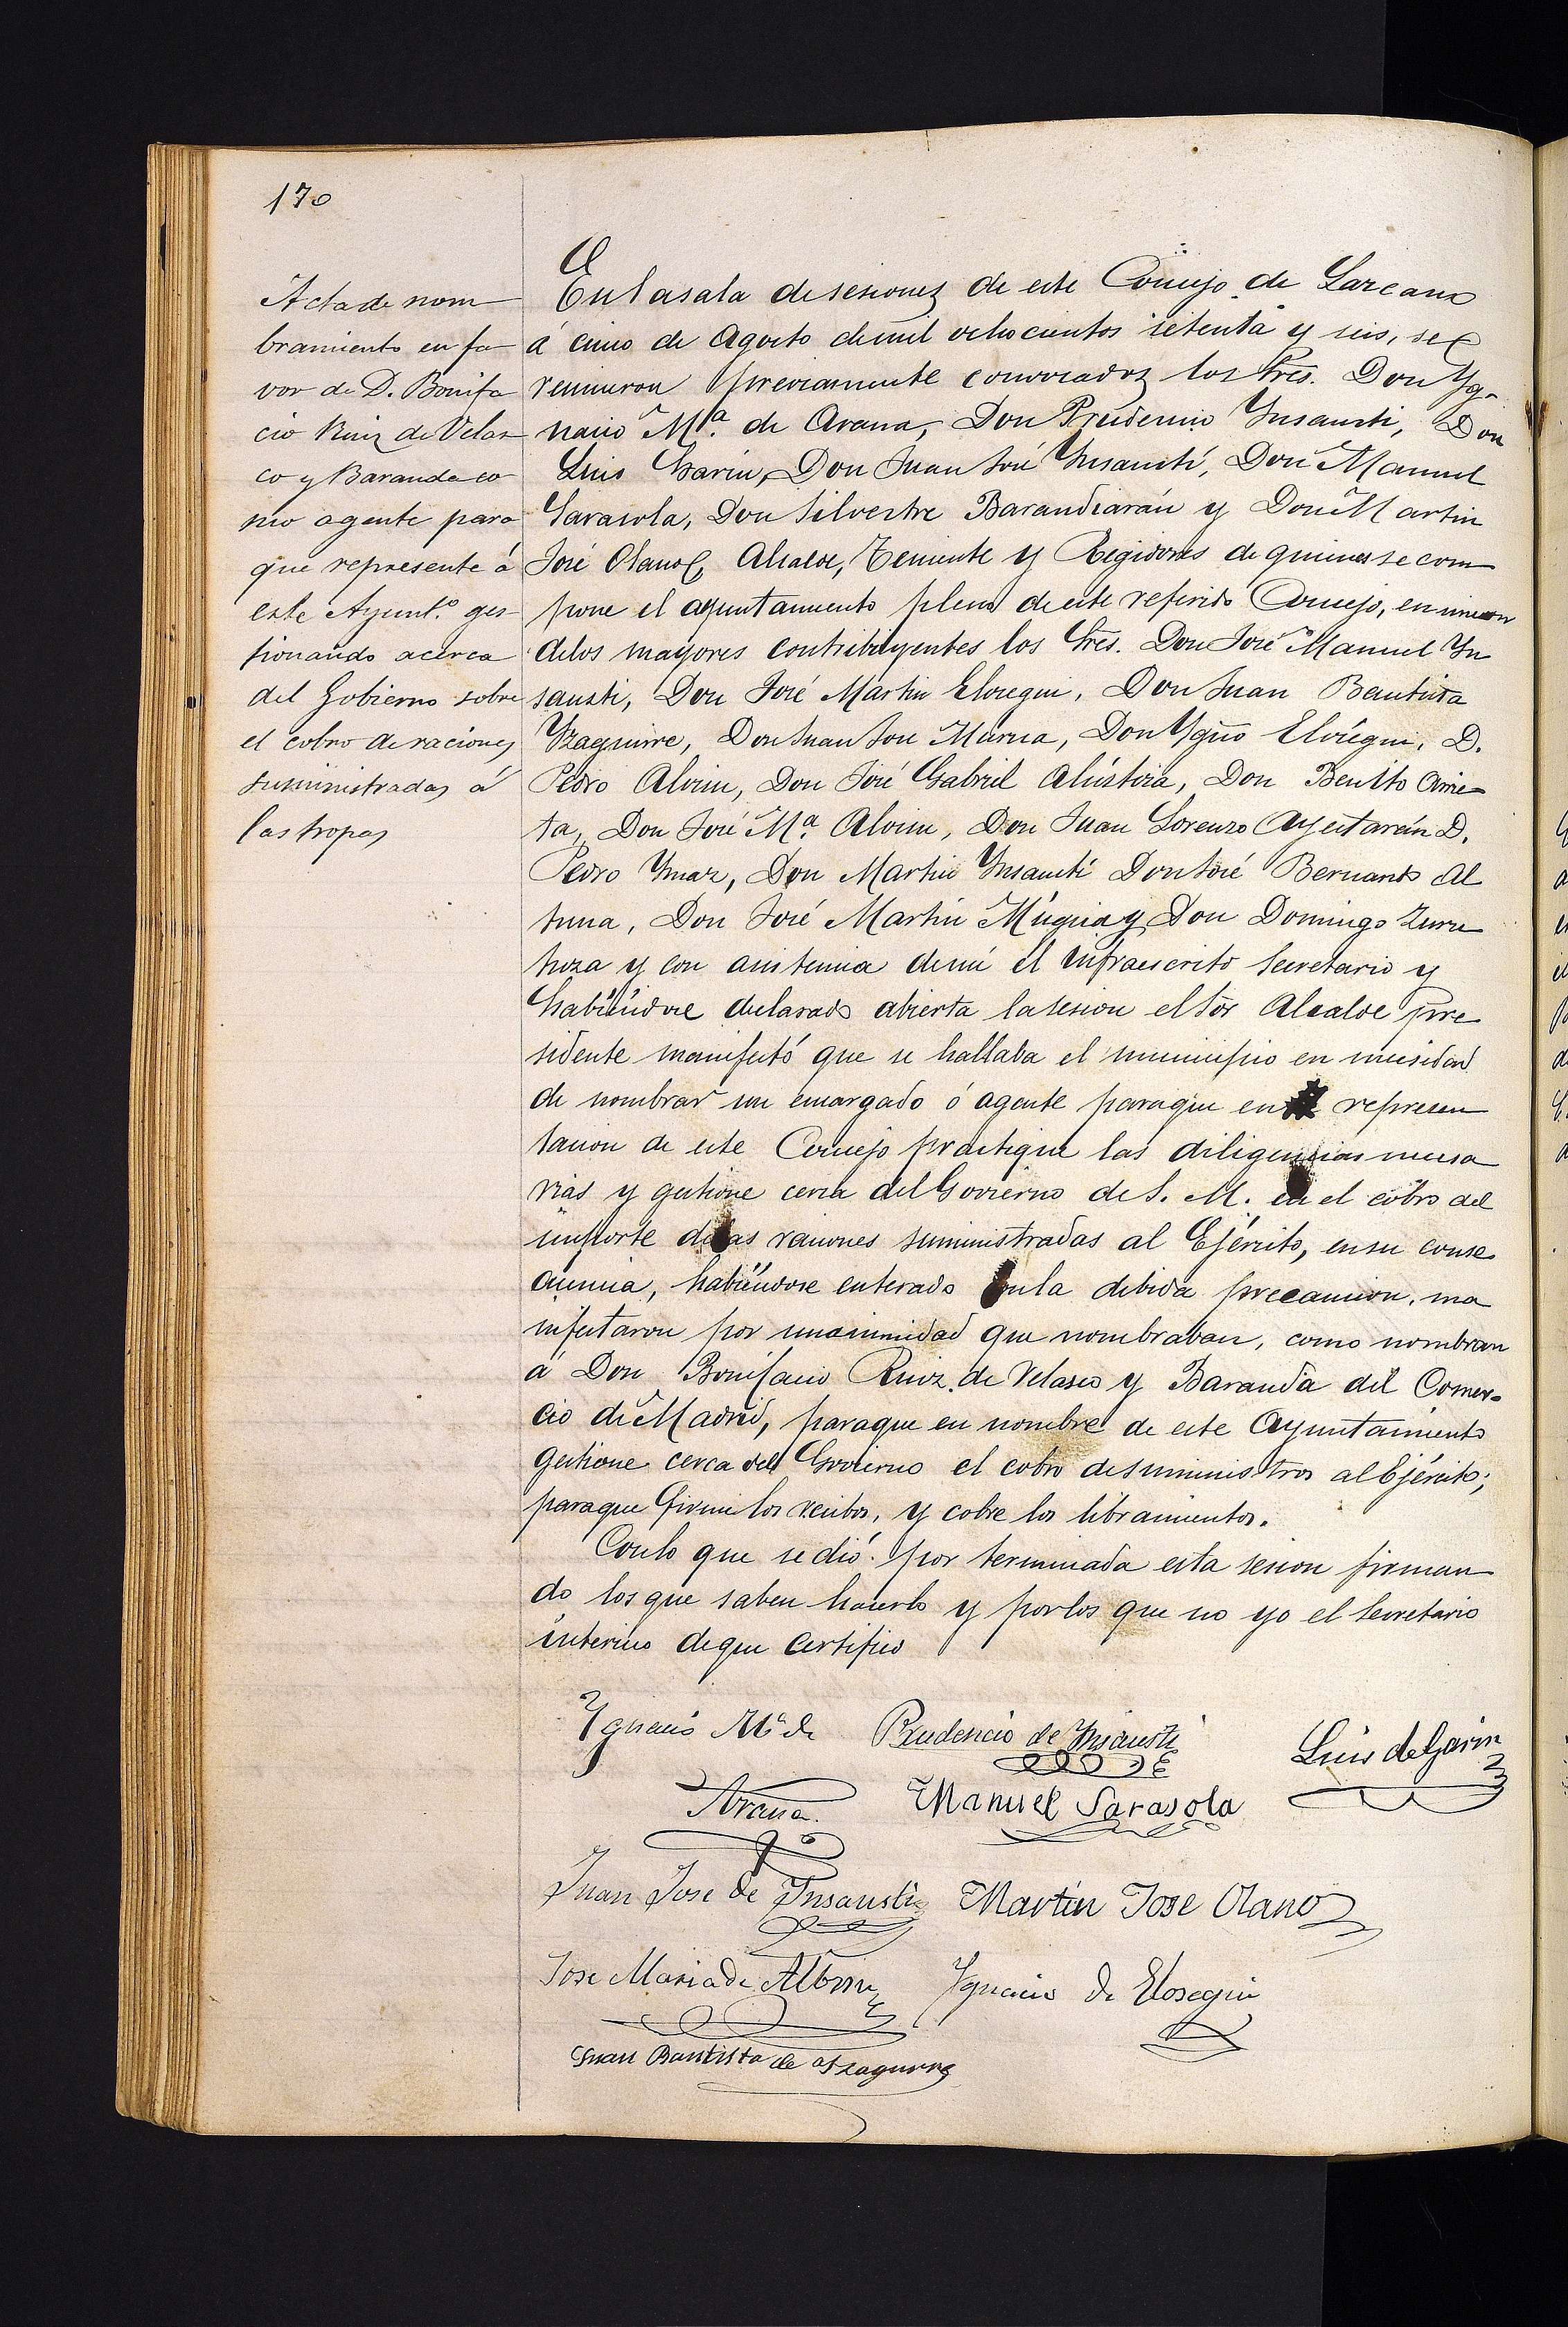 170
Acta de nom
bramiento en fa
vor de D. Bonifa
cio Ruiz de Velas
co y Baranda co
mo agente para
que represente á
este Ayunt.º ges
tionando acerca
del Gobierno sobre
el cobro de raciones
suministradas á
las tropas
En la sala de sesiones de este Concejo de Lazcano
á cinco de Agosto de mil ochocientos setenta y seis, se
reunieron previamente convocados los Sres. Don Yg-
nacio M.ª de Arana, Don Prudencio Ynsausti, Don
Luis Garin, Don Juan José Ynsausti, Don Manuel
Sarasola, Don Silvestre Barandiarán y Don Martin
José Olano, Alcalde, Teniente y Regidores de quienes se com
pone el ayuntamiento pleno de este referido Concejo, en union
de los mayores contribuyentes los Sres. Don José Manuel Yn
sausti, Don José Martin Elosegui, Don Juan Bautista
Yzaguirre, Don Juan José Murua, Don Ygno Elósegui, D.
Pedro Albisu, Don José Gabriel Alústiza, Don Benito Arrie
ta, Don José M.ª Albisu, Don Juan Lorenzo Ayestarán D.
Pedro Ymaz, Don Martin Ynsausti Don José Bernardo Al
tuna, Don José Martin Múgica y Don Domingo Zuru
tuza y con asistencia de mi el infraescrito Secretario y
habiéndose declarado abierta la sesion el Sor Alcalde pre
sidente manifestó que se hallaba el municipio en necesidad
de nombrar un encargado ó agente para que en represen
tacion de este Concejo practique las diligencias necesa
rias y gestione cerca del Govierno de S. M. en el cobro del
importe de las raciones suministradas al Ejército, en su conse
cuencia, habiéndose enterado con la debida precaucion, ma
nifestaron por unanimidad que nombraban, como nombran
á Don Bonifacio Ruiz de Velasco y Baranda del Comer-
cio de Madrid, para que en nombre de este Ayuntamiento
gestione cerca del Govierno el cobro de suministros al Ejército;
para que firme los recibos, y cobre los libramientos.
Con lo que se dió por terminada esta sesion firman
do los que saben hacerlo y por los que no yo el Secretario
interino de que certifico
Ygnacio M.ª de Prudencio de Ynsausti Luis de Garin
Arana. Manuel Sarasola
Juan Jose de Ynsausti Martin Jose Olano
Jose Maria de Albisu Ygnacio de Elosegui
Juan Bautista de Yzaguirre